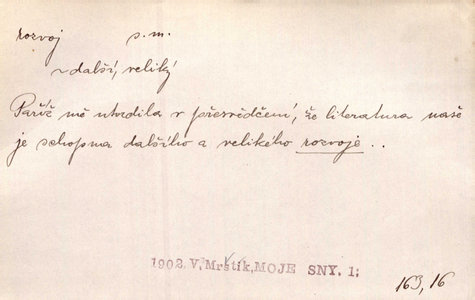 rozvoj s. m.
~ další, veliký
Paříž mě utvrdila v přesvědčení, že literatura naše
je schopna dalšího a velikého rozvoje ..
1902 V. Mrštík, MOJE SNY. I;
163, 16